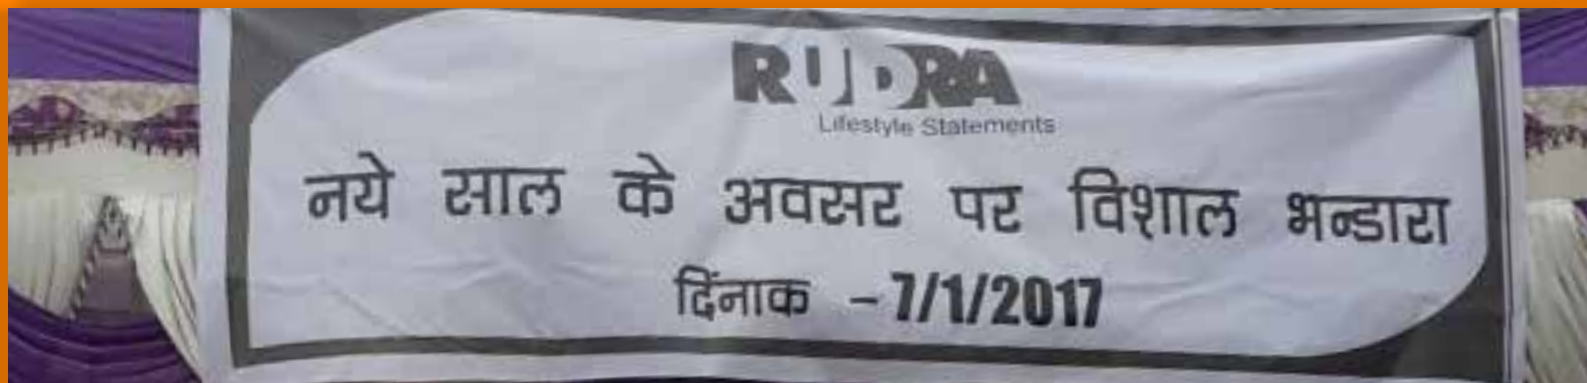 RUDRA
Lifestyle Statements
नये साल के अवसर पर विशाल भन्डारा
दिंनाक – 7/1/2017